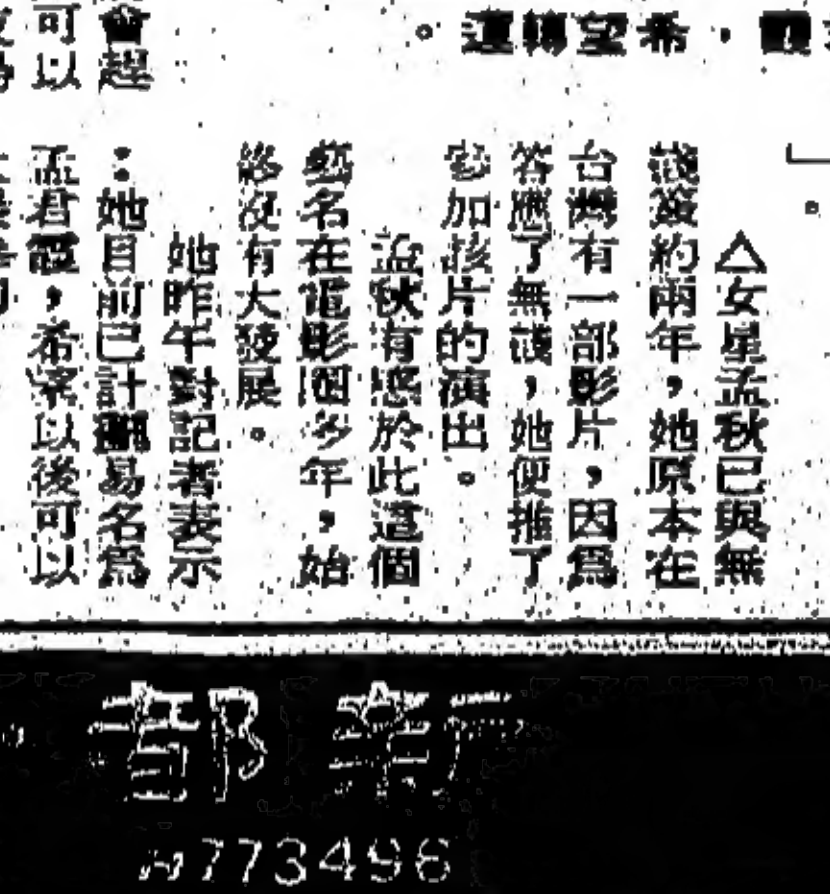 。運轉望希，
△女星孟秋已與無
綫簽約兩年，她原本在
台灣有一部影片，因爲
答應了無綫，她便推了
參加該片的演出。
孟秋有感於此這個
藝名在電影圈多年，始
終沒有大發展。
她昨午對記者表示
：她目前已計劃易名爲
孟君霞，希望以後可以
會趕
可以
773496